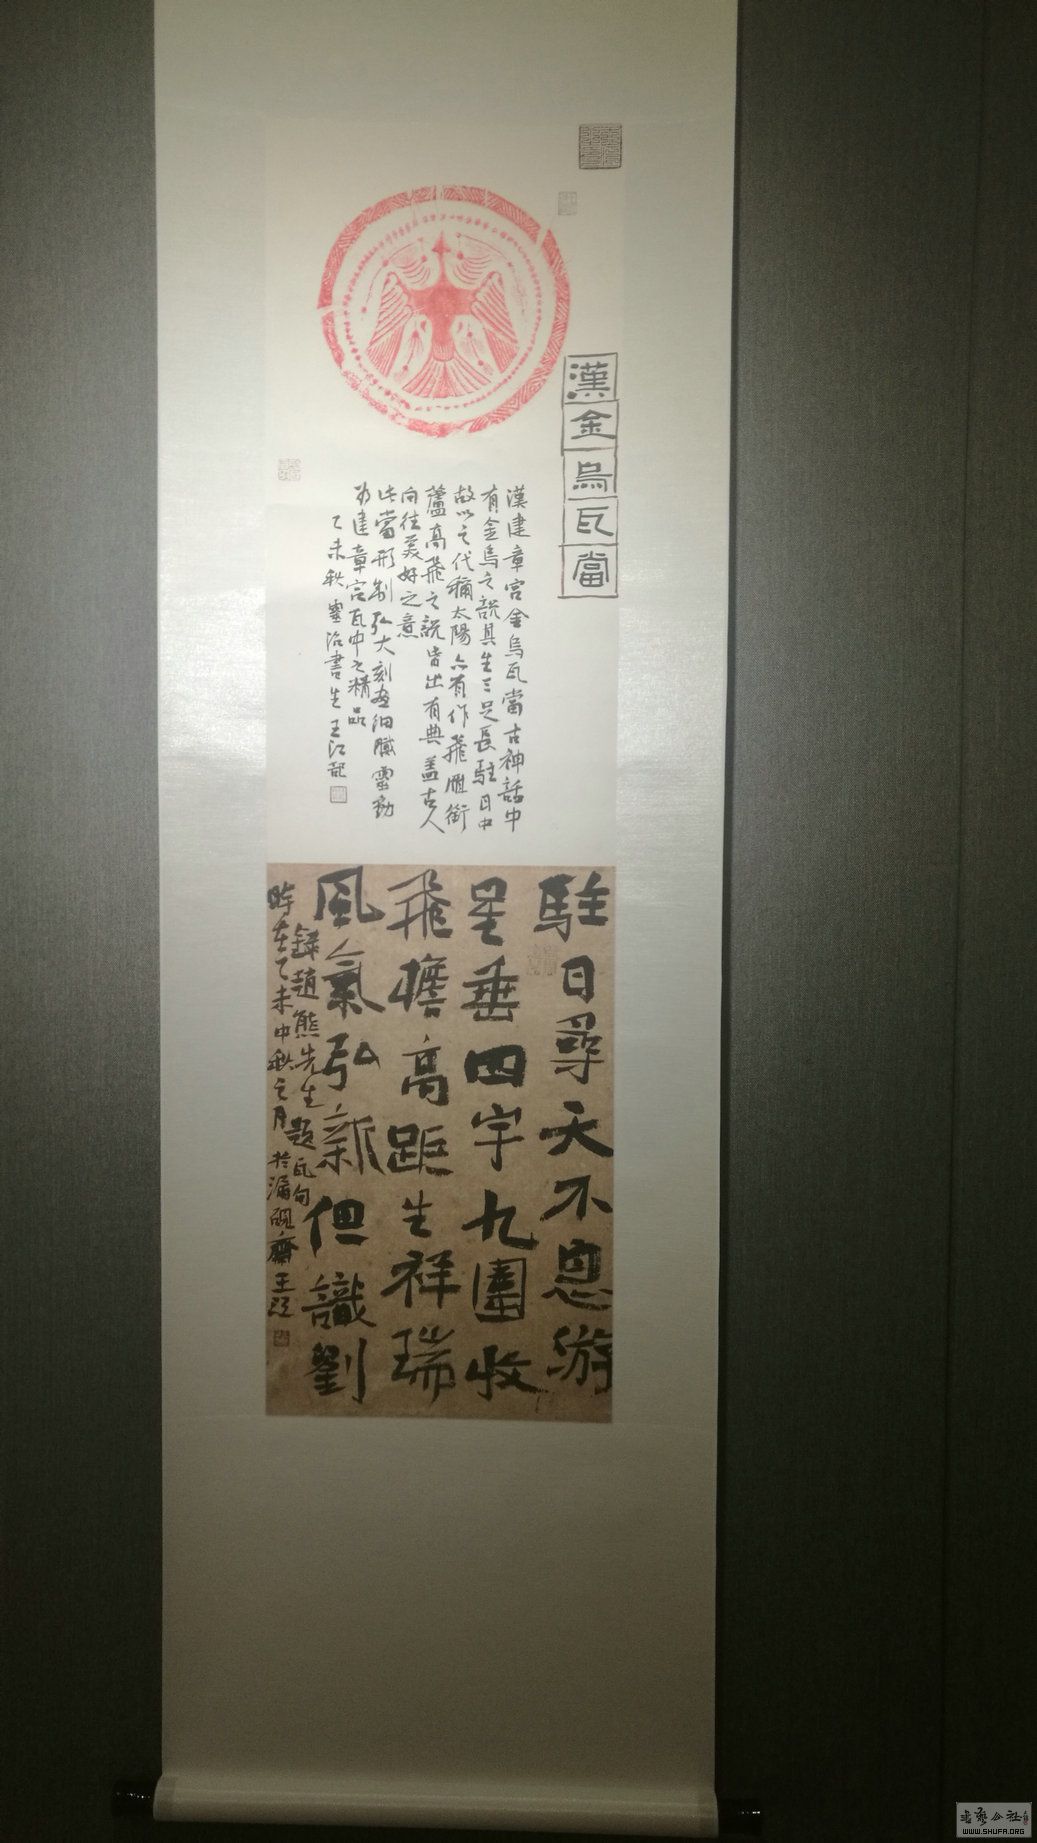 漢金烏瓦當
漢建章宮金烏瓦當古神話中
有金烏之說其生三足長駐日中
故以之代稱太陽亦有作飛雁銜
蘆高飛之說皆出有典蓋古人
向往美好之意
此當形制弘大刻畫細膩靈動
為建章宮瓦中之精品
乙未秋 書生王江
駐日尋天不息游
星垂四宇九圍收
飛檐高距生祥瑞
風氣弘新但識劉
錄趙熊先生題瓦句
時在乙未中秋之月於漏硯齋王
书艺公社
WWW.SHUFA.ORG